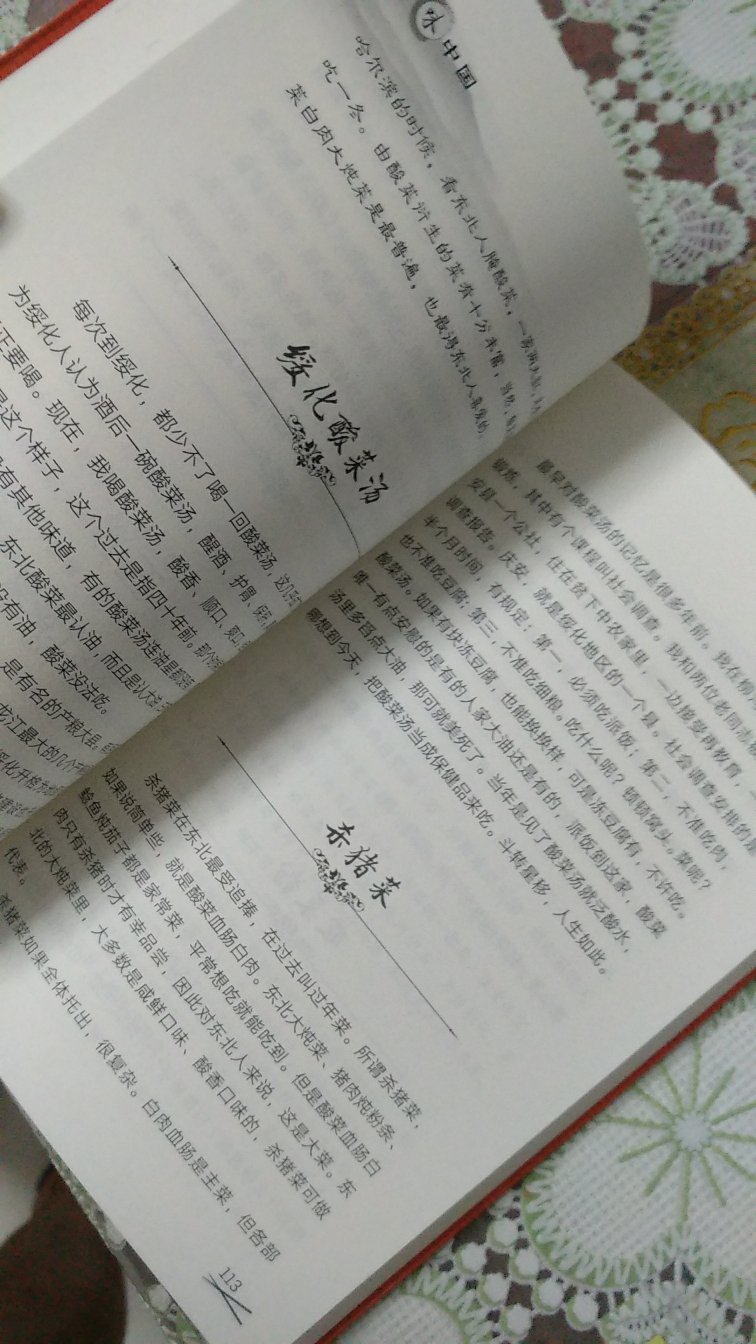 味中国
哈尔滨的时候，看东北人腌酸菜，一
吃一冬。由酸菜衍生的菜肴十分丰富，当然，
菜白肉大炖菜是最普遍，也最得东北人喜爱的
绥化酸菜汤
每次到绥化，都少不了喝一回酸菜汤，这
为绥化人认为酒后一碗酸菜汤，醒酒、护胃、
正要喝。现在，我喝酸菜汤，酸香、顺口、爽口，
这个样子，这个过去是指四十年前。
没有其他味道，有的酸菜汤连油星都
东北酸菜最认油，而且是认大油
没有油，酸菜没法吃。
是有名的产粮大县，
龙江最大的几个
绥化
最早对酸菜汤的记忆是很多年前。我在
锻炼，其中有个课程叫社会调查。我和两位老同志
安县一个公社，住在贫下中农家里，一边接受再教育，
调查报告。庆安，就是绥化地区的一个县。社会调查安排的是
半个月时间，有规定：第一，必须吃派饭；第二，不准吃肉，
也不准吃豆腐；第三，不准吃细粮。吃什么呢？顿顿窝头。菜呢？
酸菜汤。如果有块冻豆腐，也能换换样，可是冻豆腐有，不许吃。
唯一有点安慰的是有的人家大油还是有的，派饭到这家，酸菜
汤里多舀点大油，那可就美死了。当年是见了酸菜汤就乏酸水，
哪想到今天，把酸菜汤当成保健品来吃。斗转星移，人生如此。
杀猪菜
杀猪菜在东北最受追捧，在过去叫过年菜。所谓杀猪菜，
如果说简单些，就是酸菜血肠白肉。东北大炖菜、猪肉炖粉条、
鲶鱼炖茄子都是家常菜，平常想吃就能吃到。但是酸菜血肠白
肉只有杀猪时才有幸品尝，因此对东北人来说，这是大菜。东
北的大炖菜里，大多数是咸鲜口味、酸香口味的，杀猪菜可做
代表。
杀猪菜如果全体托出，很复杂。白肉血肠是主菜，但各部
113